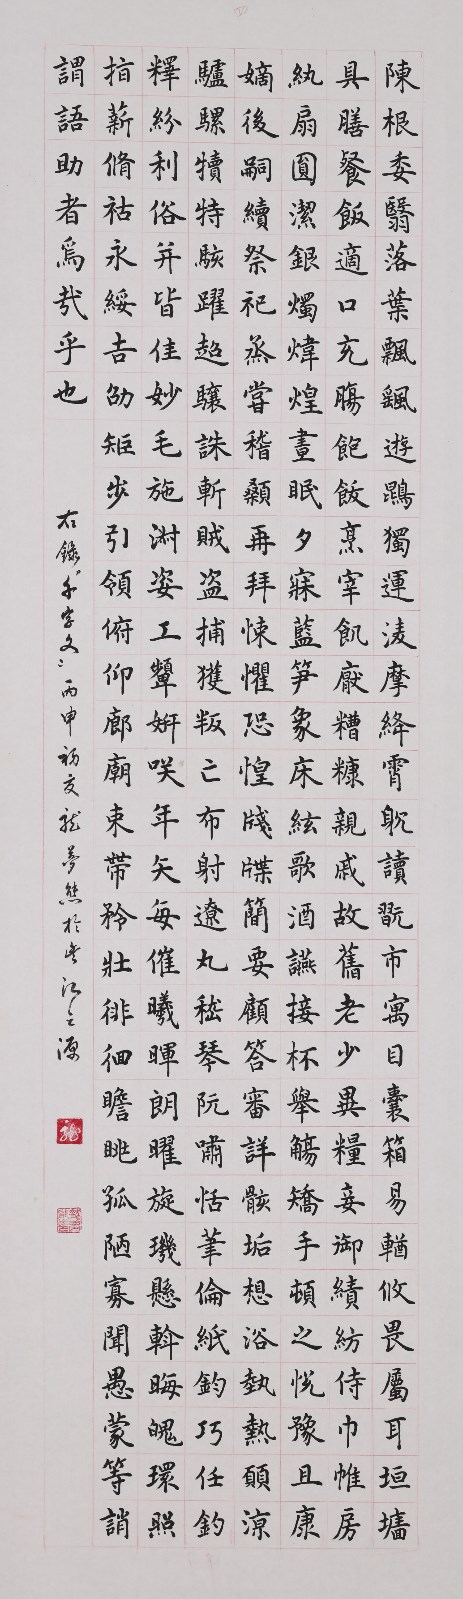 陳根委翳落葉飄颻遊鵾獨運淩摩絳霄耽讀翫市寓目囊箱易輶攸畏屬耳垣墻
具膳餐飯適口充腸飽飫烹宰飢厭糟糠親戚故舊老少異糧妾御績紡侍巾帷房
紈扇圓潔銀燭煒煌晝眠夕寐藍笋象床絃歌酒讌接杯舉觴矯手頓足悅豫且康
嫡後嗣續祭祀烝嘗稽顙再拜悚懼恐惶牋牒簡要顧答審詳骸垢想浴執熱願凉
驢騾犢特駭躍超驤誅斬賊盜捕獲叛亡布射遼丸嵇琴阮嘯恬筆倫紙鈞巧任釣
釋紛利俗并皆佳妙毛施淑姿工顰妍笑年矢每催曦暉朗曜旋璣懸斡晦魄環照
指薪脩祜永綏吉劭矩步引領俯仰廊廟束帶矜莊徘徊瞻眺孤陋寡聞愚蒙等誚
謂語助者焉哉乎也
右錄千字文丙申初夏龍夢熊於江之源